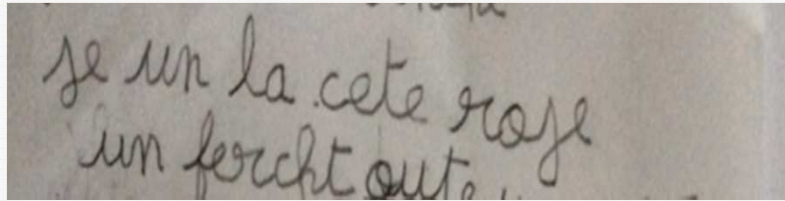 je un la cete rose
un fercht oute